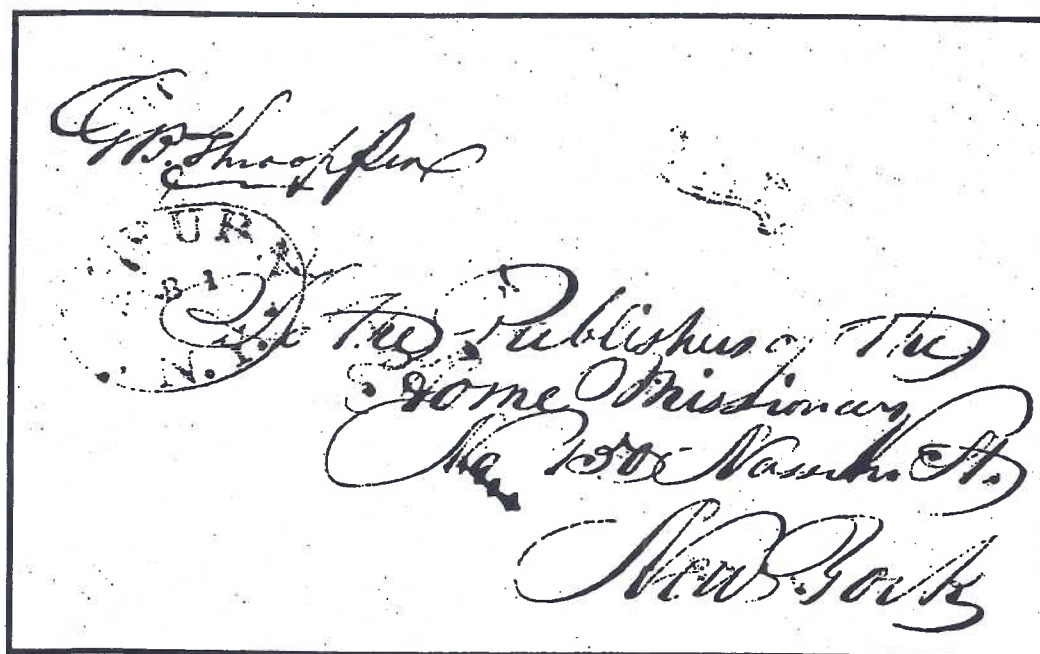 G B. Throop
BURN
N.Y.
To The Publishers of The
Home Missionary
No 150 Nassau St.
New York